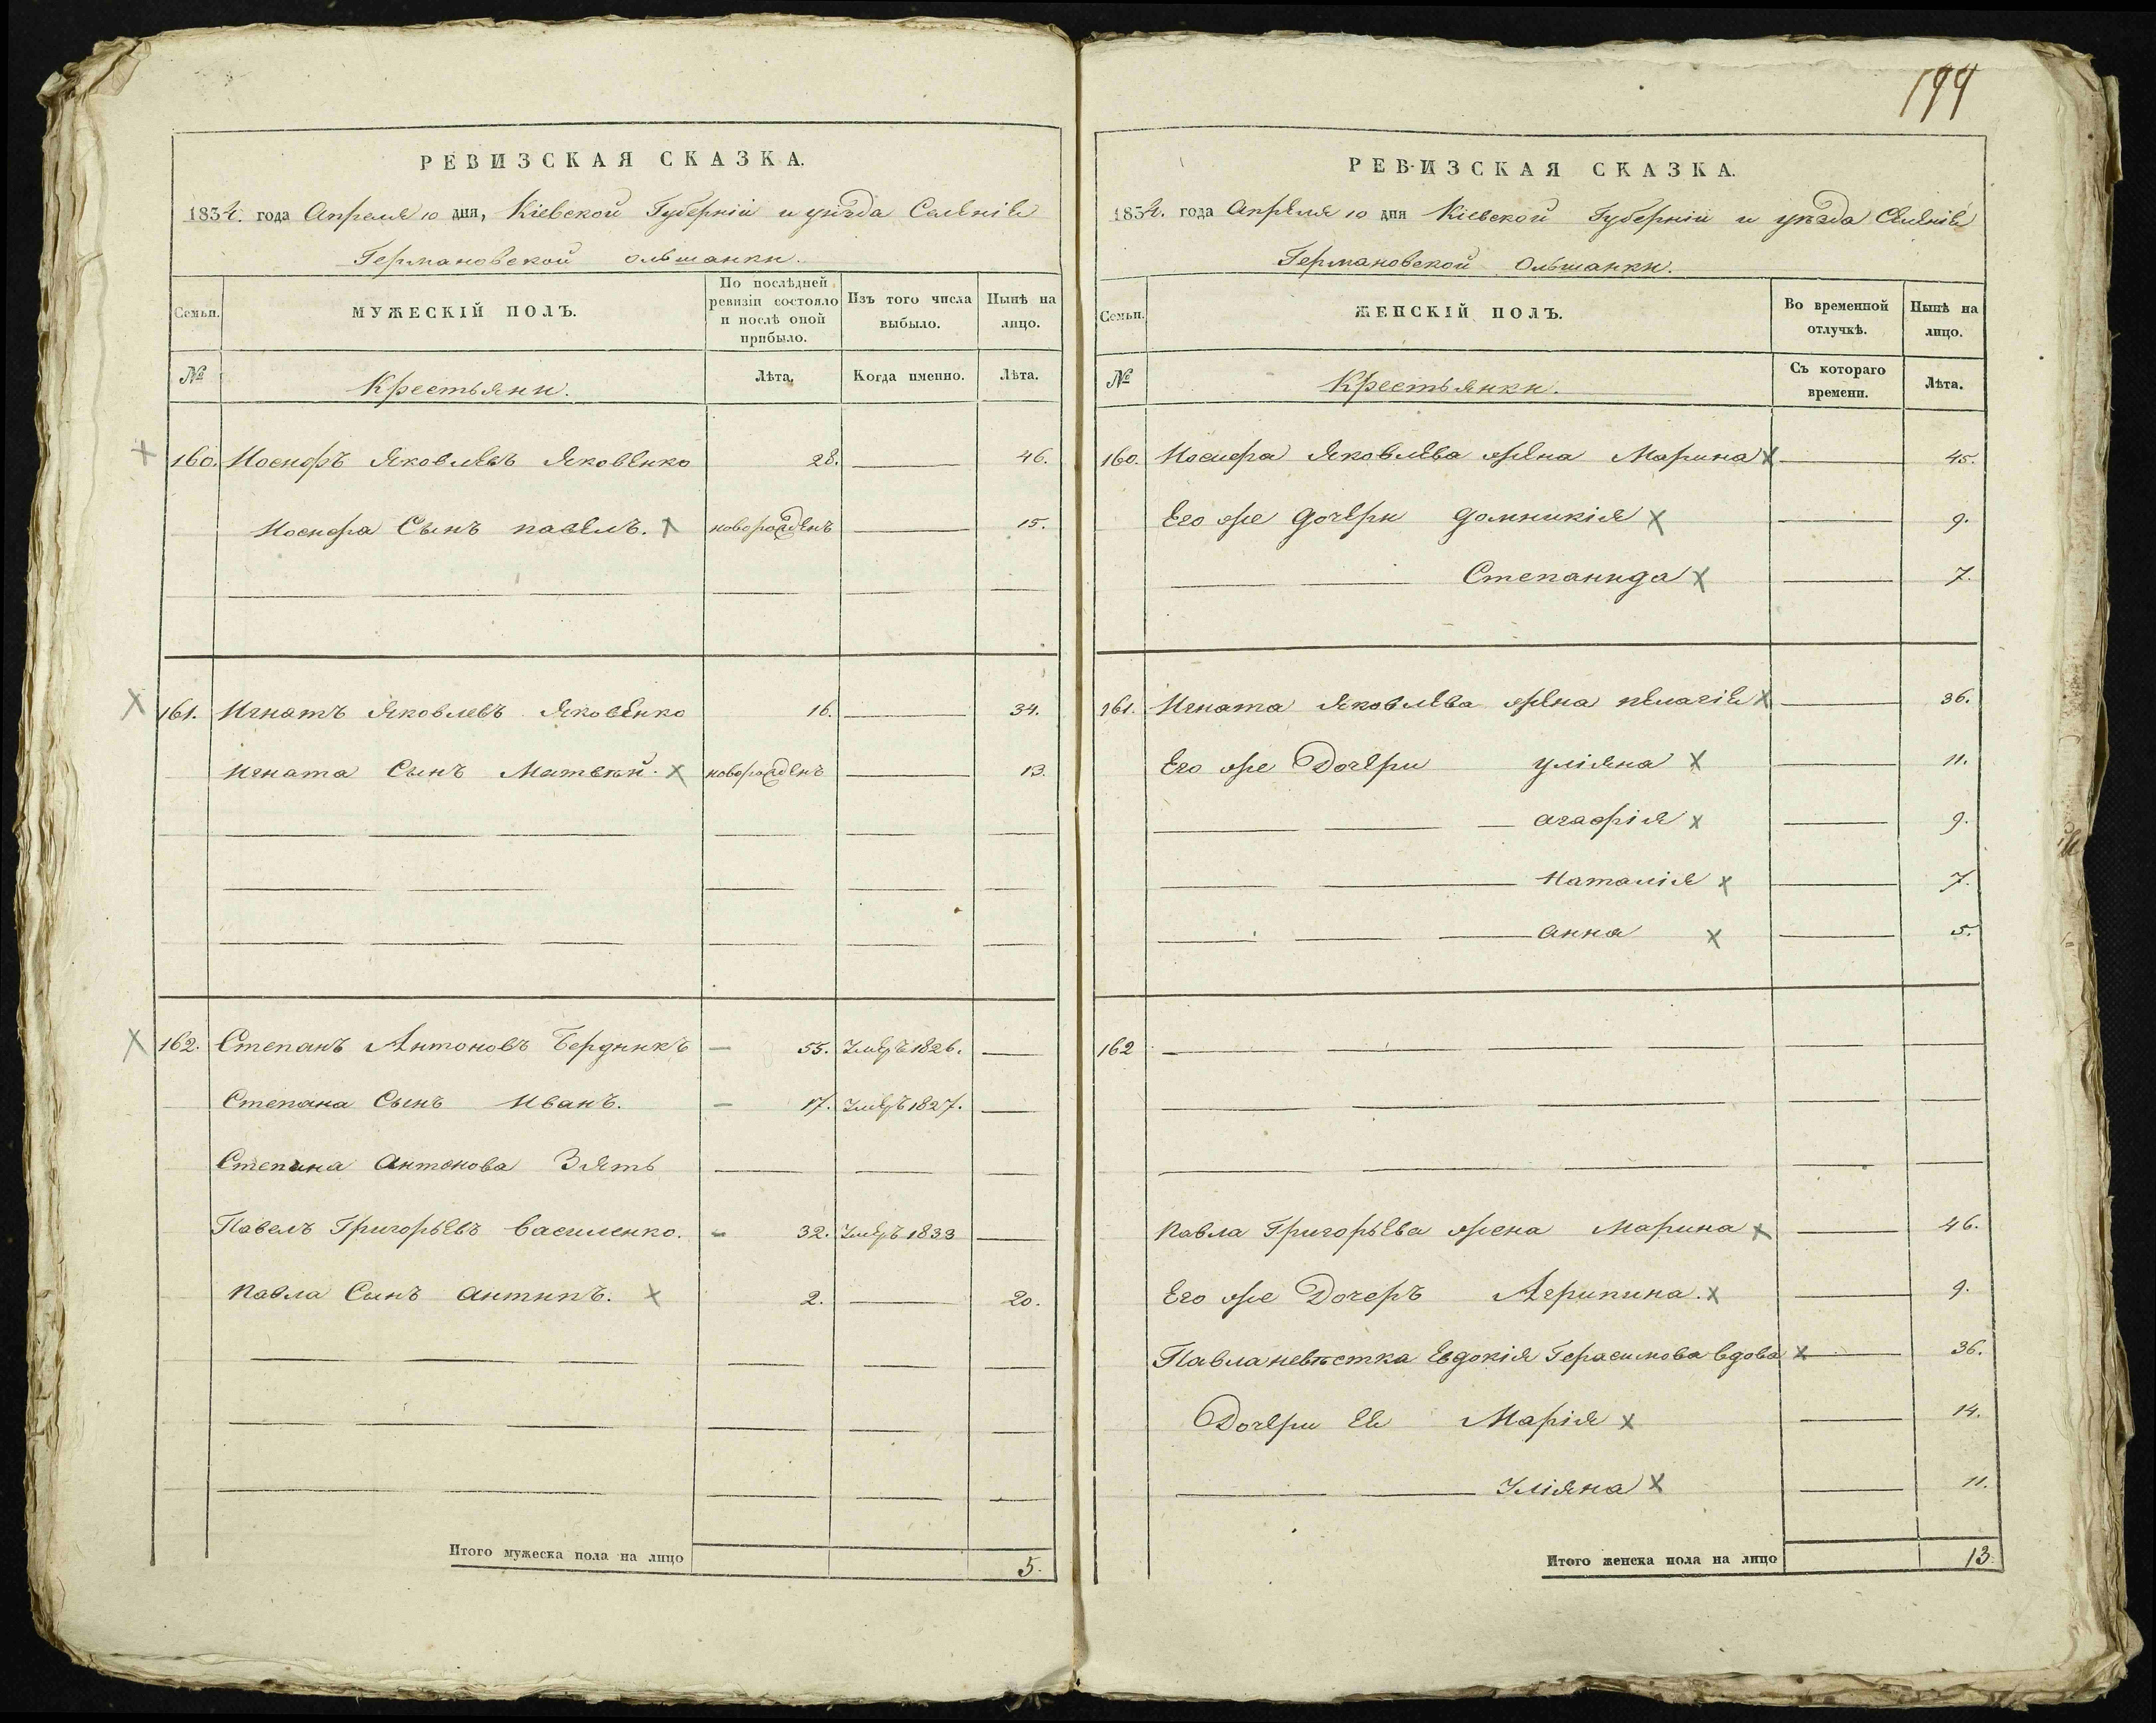 РЕВИЗСКАЯ СКАЗКА.
1834. года Апреля 10 дня, Кіевской Губерніи и уѣзда Селенія
Германовской ольшанки.
Семьи. МУЖЕСКІЙ ПОЛЪ. По послѣдней ревизіи состояло и послѣ оной прибыло. Изъ того числа выбыло. Нынѣ на лицо.
№ Крестьяни. Лѣта. Когда именно. Лѣта.
160. Иосифъ Яковлевъ Яковенко 28. 46.
Иосифа Сынъ павелъ. новорожденъ 15.
161. Игнатъ Яковлевъ Яковенко 16. 34.
Игната Сынъ Матвѣй. новорожденъ 13.
162. Степанъ Антоновъ Бердникъ 55. Умеръ 1826.
Степана Сынъ Иванъ. 17. Умеръ 1827.
Степана Антонова Зять
Павелъ Григорьевъ Василенко. 32. Умеръ 1833
Павла Сынъ Антипъ. 2. 20.
Итого мужеска пола на лицо 5.
199
РЕВИЗСКАЯ СКАЗКА.
1834. года Апреля 10 дня Кіевской Губерніи и уѣзда Селенія
Германовской Ольшанки.
Семьи. ЖЕНСКІЙ ПОЛЪ. Во временной отлучкѣ. Нынѣ на лицо.
№ Крестьянки. Съ котораго времени. Лѣта.
160. Иосифа Яковлева жена Марина 45.
Его же дочери домникія 9.
Степанида 7.
161. Игната Яковлева жена пелагія 36.
Его же Дочери уліяна 11.
агафія 9.
Наталія 7.
анна 5.
162
Павла Григорьева жена Марина 46.
Его же Дочеръ Агрипина. 9.
Павла невѣстка Евдокія Герасимова вдова 36.
Дочери Ея Марія 14.
Уліяна 11.
Итого женска пола на лицо 13.